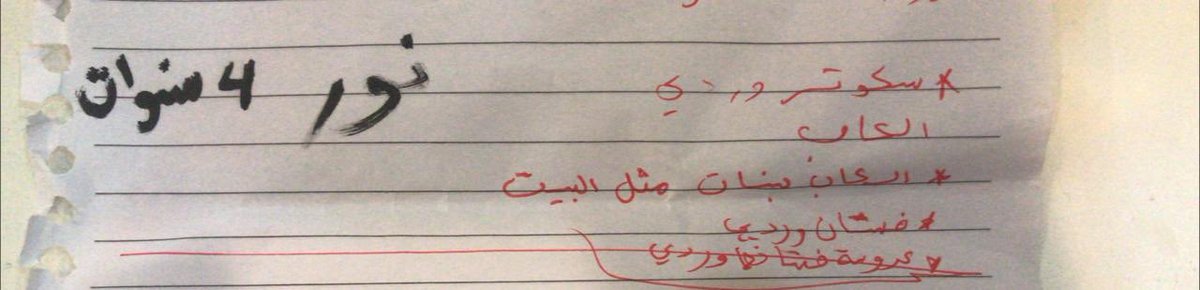 نور 4 سنوات
* سكوتر وردي
العاب
* العاب بنات مثل البيت
* فستان وردي
* عروسة فستانها وردي